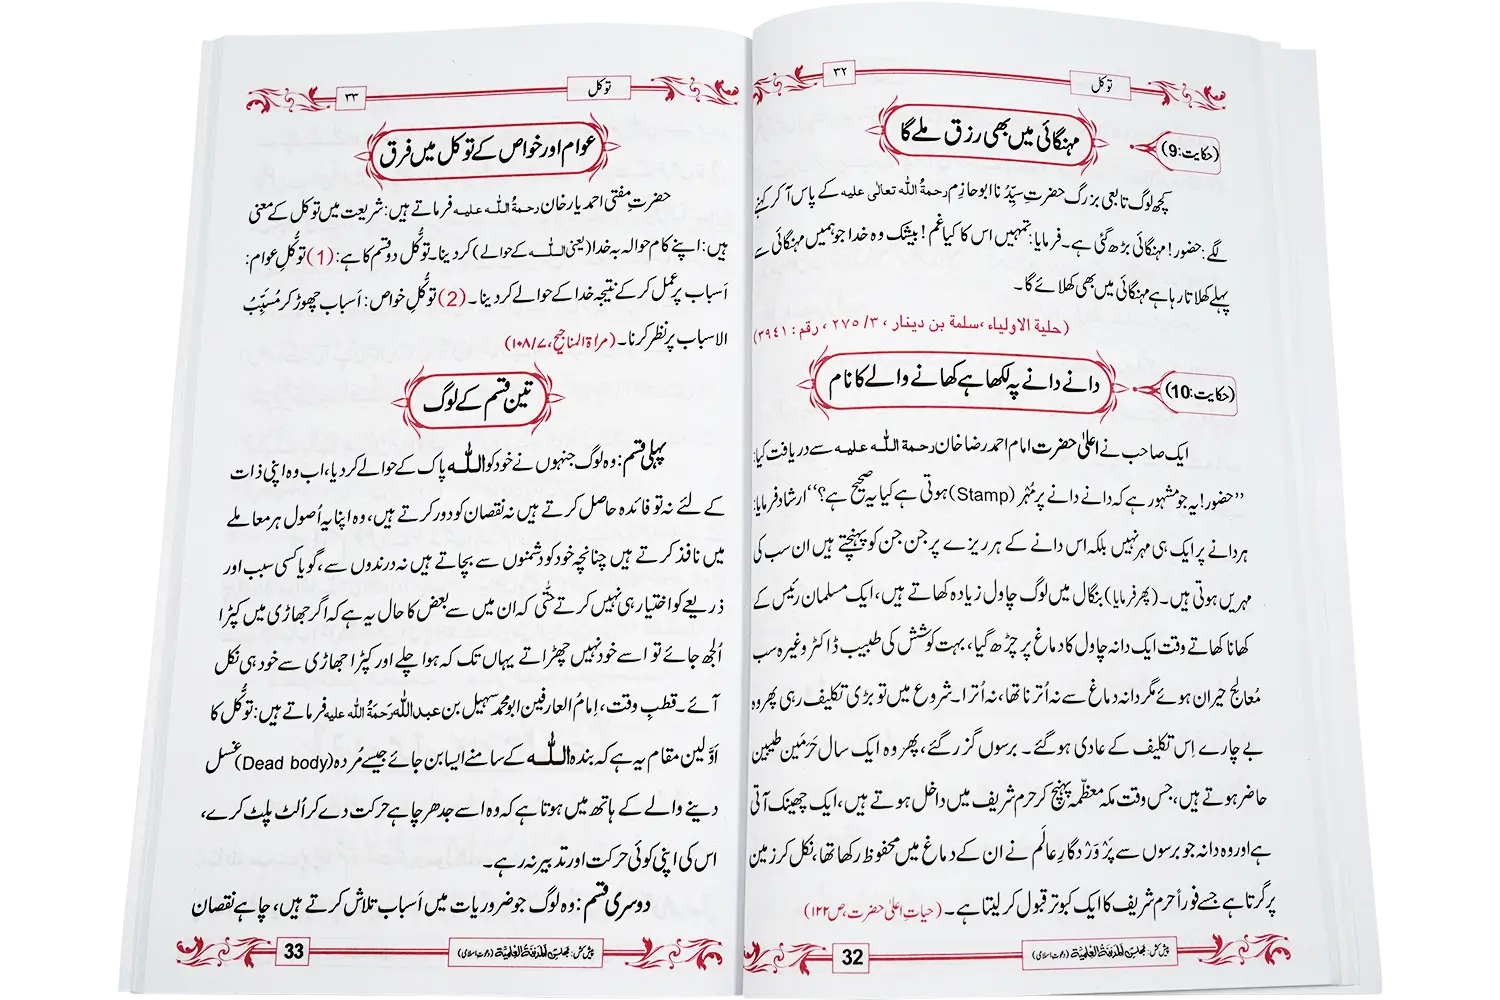 توکل
۳۲
(حکایت:9)
مہنگائی میں بھی رزق ملے گا
کچھ لوگ تابعی بزرگ حضرتِ سیِّدُنا ابو حازِم رحمۃُ اللہ تعالٰی علیه کے پاس آ کر کہنے
لگے:حضور! مہنگائی بڑھ گئی ہے۔ فرمایا: تمہیں اس کا کیا غم! بیشک وہ خدا جو ہمیں مہنگائی سے
پہلے کھلاتا رہا ہے مہنگائی میں بھی کھلائے گا۔
(حلیة الاولیاء ،سلمة بن دینار ، ۳/ ۲۷۵ ، رقم : ۳۹۴۱)
(حکایت:10)
دانے دانے پہ لکھا ہے کھانے والے کا نام
ایک صاحب نے اعلیٰ حضرت امام احمد رضا خان رحمة اللّٰہ علیه سے دریافت کیا:
’’حضور! یہ جو مشہور ہے کہ دانے دانے پر مُہْر (Stamp) ہوتی ہے کیا یہ صحیح ہے؟‘‘ ارشاد فرمایا:
ہر دانے پر ایک ہی مہر نہیں بلکہ اس دانے کے ہر ریزے پر جن جن کو پہنچتے ہیں ان سب کی
مہریں ہوتی ہیں۔ (پھر فرمایا) بنگال میں لوگ چاول زیادہ کھاتے ہیں، ایک مسلمان رئیس کے
کھانا کھاتے وقت ایک دانہ چاول کا دماغ پر چڑھ گیا، بہت کوشش کی طبیب ڈاکٹر وغیرہ سب
مُعالِج حیران ہوئے مگر دانہ دماغ سے نہ اُترنا تھا، نہ اُترا۔ شروع میں تو بڑی تکلیف رہی پھر وہ
بے چارے اِس تکلیف کے عادی ہو گئے۔ برسوں گزر گئے، پھر وہ ایک سال حَرَمَین طیبین
حاضر ہوتے ہیں، جس وقت مکہ معظّمہ پہنچ کر حرم شریف میں داخل ہوتے ہیں، ایک چھینک آتی
ہے اور وہ دانہ جو برسوں سے پَرْوَرْدگارِ عالَم نے ان کے دماغ میں محفوظ رکھا تھا، نکل کر زمین
پر گرتا ہے جسے فوراً حرم شریف کا ایک کبوتر قبول کر لیتا ہے۔ (حیاتِ اعلیٰ حضرت،ص ۱۲۲)
پیش کش: مجلس المدینۃ العلمیۃ (دعوتِ اسلامی)
32
توکل
۳۳
عوام اور خواص کے توکل میں فرق
حضرتِ مفتی احمد یار خان رحمۃُ اللّٰہ علیہ فرماتے ہیں: شریعت میں توکل کے معنی
ہیں: اپنے کام حوالہ بہ خدا (یعنی اللہ کے حوالے) کر دینا۔ توکُّل دو قسم کا ہے: (1) توکُّلِ عوام:
اَسباب پر عمل کر کے نتیجہ خدا کے حوالے کر دینا۔ (2) توکُّلِ خواص: اَسباب چھوڑ کر مُسَبِّبُ
الاسباب پر نظر کرنا۔ (مراٰۃ المناجیح، ۷/۱۰۸)
تین قسم کے لوگ
پہلی قسم: وہ لوگ جنہوں نے خود کو اللّٰہ پاک کے حوالے کر دیا، اب وہ اپنی ذات
کے لئے نہ تو فائدہ حاصل کرتے ہیں نہ نقصان کو دور کرتے ہیں، وہ اپنا یہ اُصول ہر معاملے
میں نافذ کرتے ہیں چنانچہ خود کو دشمنوں سے بچاتے ہیں نہ درندوں سے، گویا کسی سبب اور
ذریعے کو اختیار ہی نہیں کرتے حتّٰی کہ ان میں سے بعض کا حال یہ ہے کہ اگر جھاڑی میں کپڑا
اُلجھ جائے تو اسے خود نہیں چھڑاتے یہاں تک کہ ہوا چلے اور کپڑا جھاڑی سے خود ہی نکل
آئے۔ قطبِ وقت، اِمامُ العارفین ابو محمد سہیل بن عبداللّٰہ رَحمۃُ اللہ علیہ فرماتے ہیں: توکُّل کا
اَوَّلین مقام یہ ہے کہ بندہ اللّٰہ کے سامنے ایسا بن جائے جیسے مُردہ (Dead body) غسل
دینے والے کے ہاتھ میں ہوتا ہے کہ وہ اسے جدھر چاہے حرکت دے کر اُلٹ پلٹ کرے،
اس کی اپنی کوئی حرکت اور تدبیر نہ رہے۔
دوسری قسم: وہ لوگ جو ضروریات میں اَسباب تلاش کرتے ہیں، چاہے نقصان
پیش کش: مجلس المدینۃ العلمیۃ (دعوتِ اسلامی)
33